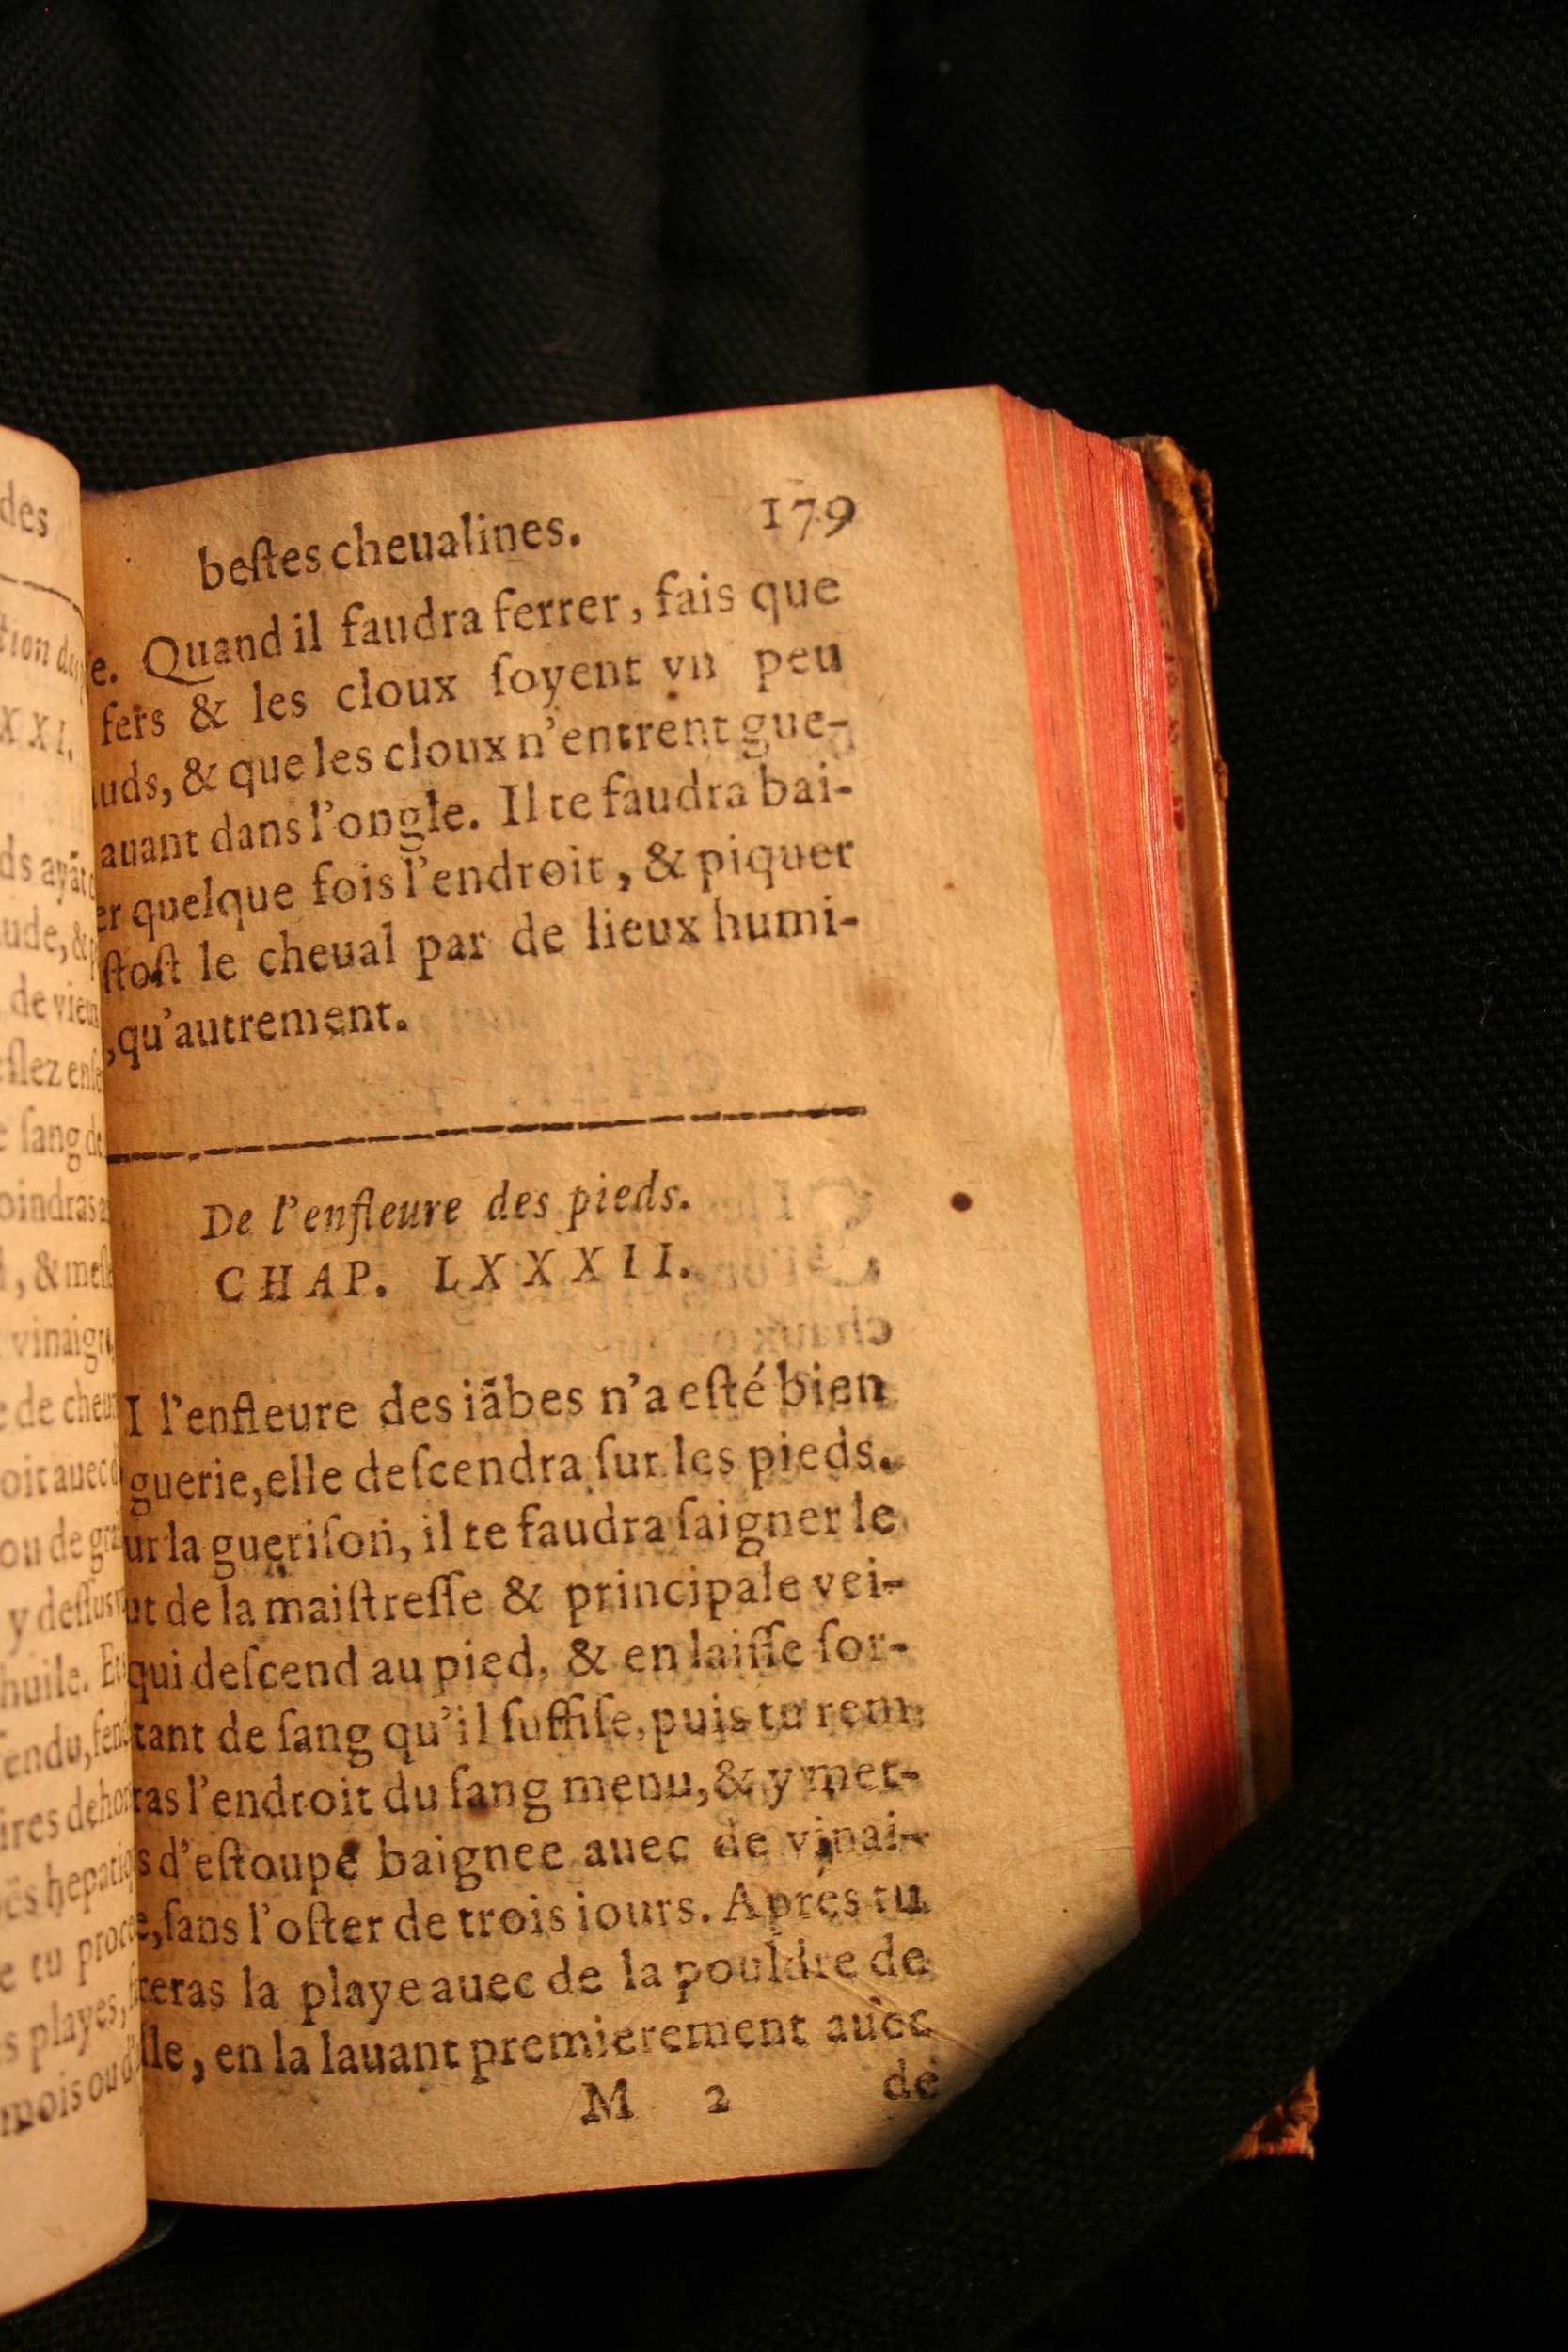 des
beſtes cheualines. 179
e. Quand il faudra ferrer, fais que
fers & les cloux ſoyent vn peu
auds, & que les cloux n'entrent gue-
auant dans l'ongle. Il te faudra bai-
er quelque fois l'endroit, & piquer
ſtoſt le cheual par de lieux humi-
,qu'autrement.
De l'enfleure des pieds.
CHAP. LXXXII.
I l'enfleure des iãbes n'a eſté bien
guerie, elle deſcendra ſur les pieds.
ur la gueriſon, il te faudra ſaigner le
ut de la maiſtreſſe & principale vei-
qui deſcend au pied, & en laiſſe ſor-
tant de ſang qu'il ſuffiſe, puis tu rem
ras l'endroit du ſang menu, & y met-
s d'eſtoupe baignee auec de vinai-
e, ſans l'oſter de trois iours. Aprés tu
teras la playe auec de la pouldre de
lle, en la lauant premierement auec
M 2 de
XXI.
ds ayãt
ude, &
de vieux
e ſang de
oindras
, & meſle
vinaigre
de cheu
oit auec
ou de gra
y deſſus
huile. Et
fendu, fend
ires dehor
hepatiq
e tu proce
s playes,
mois ou d'